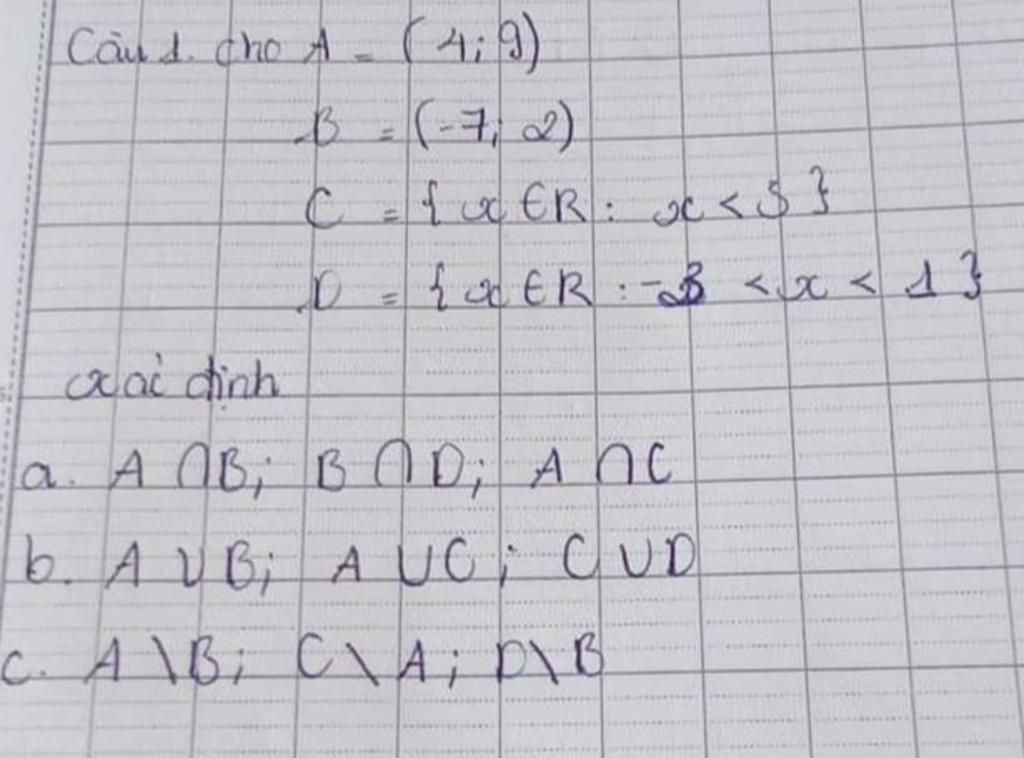 Câu 1. cho A = (4; 9)
B = (-7; 2)
C = { x ∈ R : x < }
D = { x ∈ R : < x < 1 }
định
a. A ∩ B; B ∩ D; A ∩ C
b. A ∪ B; A ∪ C; C ∪ D
c. A \ B; C \ A; D \ B